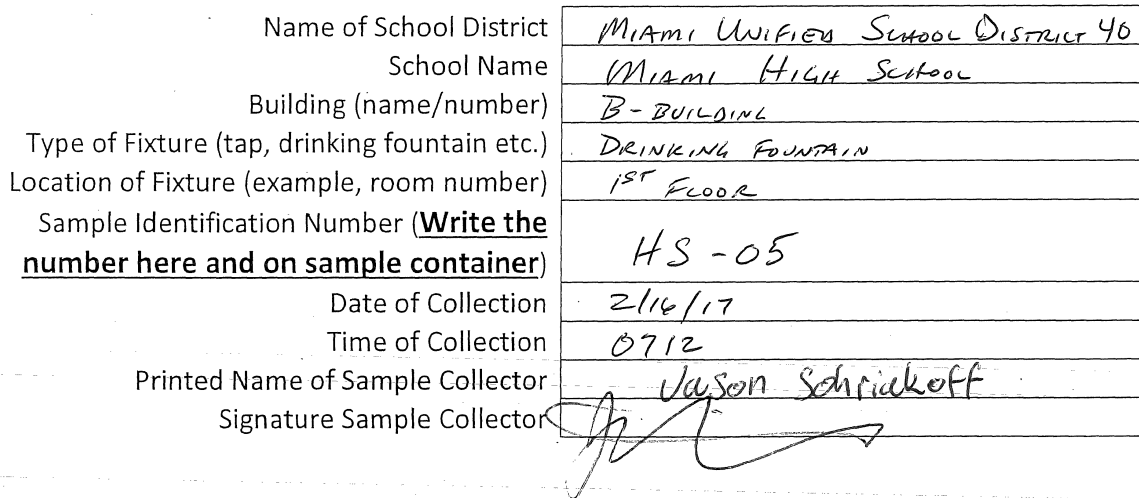 Name of School District MIAMI UNIFIED SCHOOL DISTRICT 40
School Name MIAMI HIGH SCHOOL
Building (name/number) B-BUILDING
Type of Fixture (tap, drinking fountain etc.) DRINKING FOUNTAIN
Location of Fixture (example, room number) 1ST FLOOR
Sample Identification Number (Write the
number here and on sample container) HS-05
Date of Collection 2/16/17
Time of Collection 0712
Printed Name of Sample Collector Jason
Signature Sample Collector